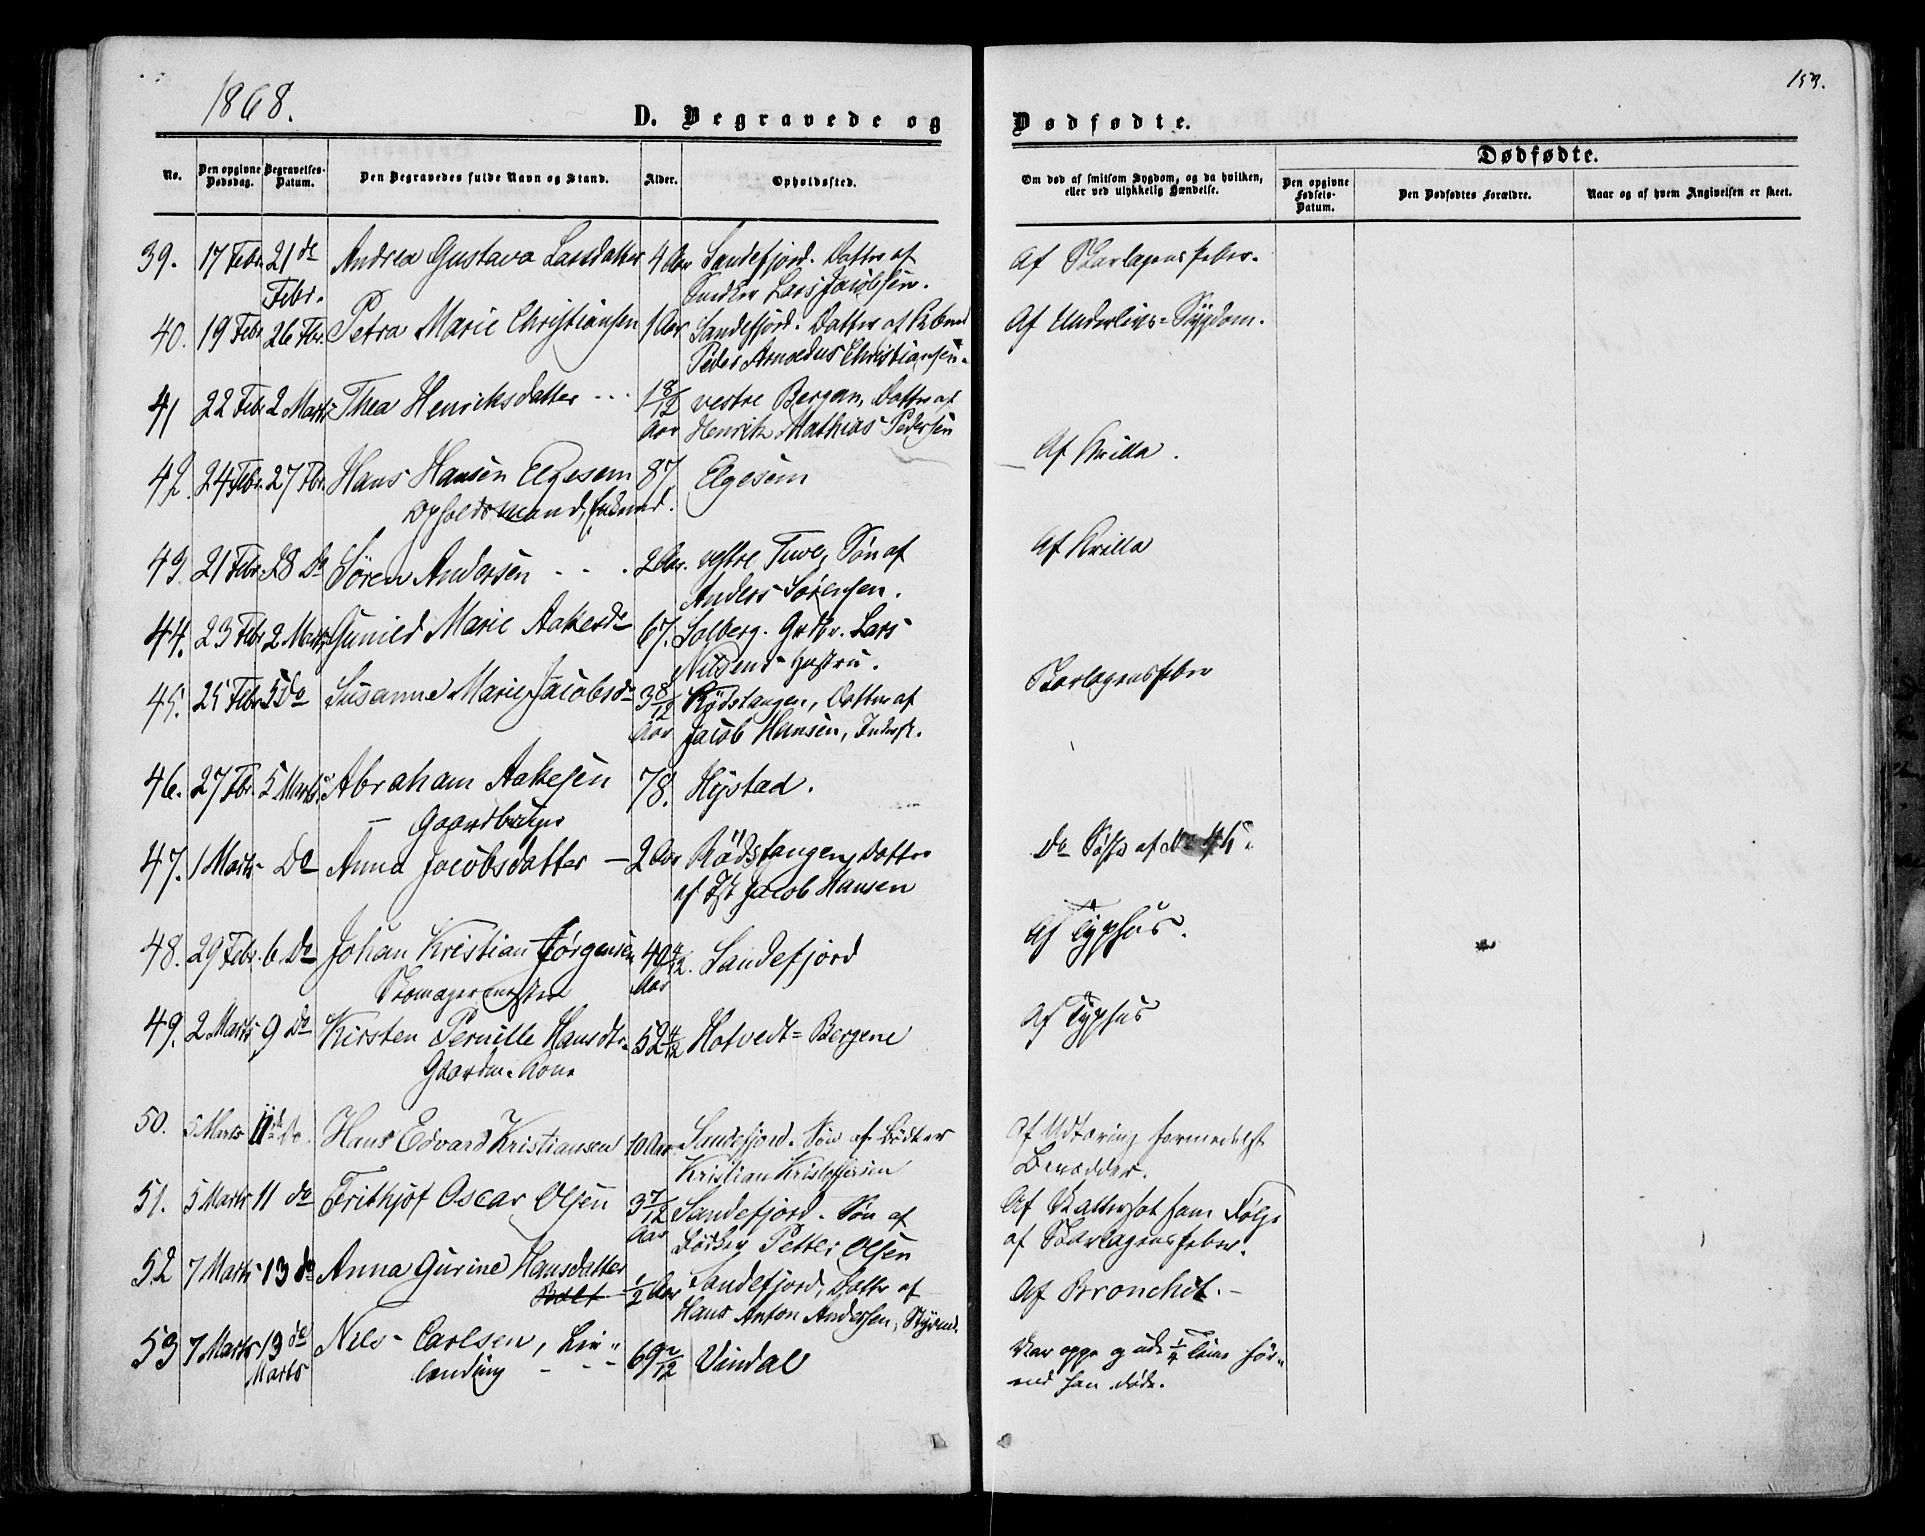 1868.
153.
D. Begravede og Dødfødte.
Dødfødte.
No.
Den opgivne Dødsdag.
Begravelses-Datum.
Den Begravedes fulde Navn og Stand.
Alder.
Opholdssted.
Om død af smitsom Sygdom, og da hvilken,
eller ved ulykkelig Hændelse.
Den opgivne Fødsels-Datum.
Den Dødfødtes Forældre.
Naar og af hvem Angivelsen er skeet.
39. 17 Febr. 21 do Andrea Gustava Larsdatter 4 Aar Sandefjord. Datter af Af Skarlagensfeber.
Febr. Snedker Lars Jacobsen.
40. 19 Febr 26 Fbr. Petra Marie Christiansen 1 Aar Sandefjord. Datter af Af Underlivs-Sygdom.
Peder Arnoldus Christiansen.
41 22 Febr 2 Marts Thea Henriksdatter 1 8/12 vestre Bergan, Datter af
Aar Henrik Mathias Pedersen
Af Krilla.
42. 24 Febr. 27 Fbr. Hans Hansen Elgesem 87. Elgesem
Opholdsmand,
43. 21 Febr. 28 Do Søren Andersen 2 Aar. vestre Tuve, Søn af Af Krilla
Anders Sørensen.
44. 23 Febr 2. Marts Gunild Marie Aakesd 67. Solberg. Grdbr. Lars
Nilsens Hustru.
45. 25 Febr 5 Do Susanne Marie Jacobsd 3 8/12 Rødstangen, Datter af Skarlagensfeber
Aar Jacob Hansen, Inderst.
46. 27 Fbr. 5 Marts Abraham Aakesen 78. Hystad.
Gaardbruger
47. 1 Marts Do Anna Jacobsdatter 2 Aar Rødstangen, Datter Do Søster af No 45.
af Jacob Hansen
48. 29 Febr. 6 Do Johan Kristian Jørgensen 40 /12. Sandefjord Af Typhus.
Skomagermester Aar
49. 2 Marts 9 Do Kirsten Pernille Hansdtr. 52 4/12 Hotvedt-Bergene Af Typhus
Gaardm. Kone
50. 5 Marts 11 do Hans Edvard Kristiansen 10 Aar Sandefjord. Søn af Bødker Af Udtæring formedelst
Kristian Kristoffersen
51. 5 Marts 11 do Frithjof Oscar Olsen 3 7/12 Sandefjord. Søn af Af Vattersot som Følge
Aar Petter Olsen af Skarlagensfeber.
52 7 Marts 13 do Anna Gurine Hansdatter 1/2 Aar Sandefjord, Datter af Af Bronchit.
Hans Anton Andersen, Styrmd.
53 7 Marts 13 de Nils Carlsen, 69 /12 Vindal Var oppe og ude 1/4 Time før-
Marts end han døde.